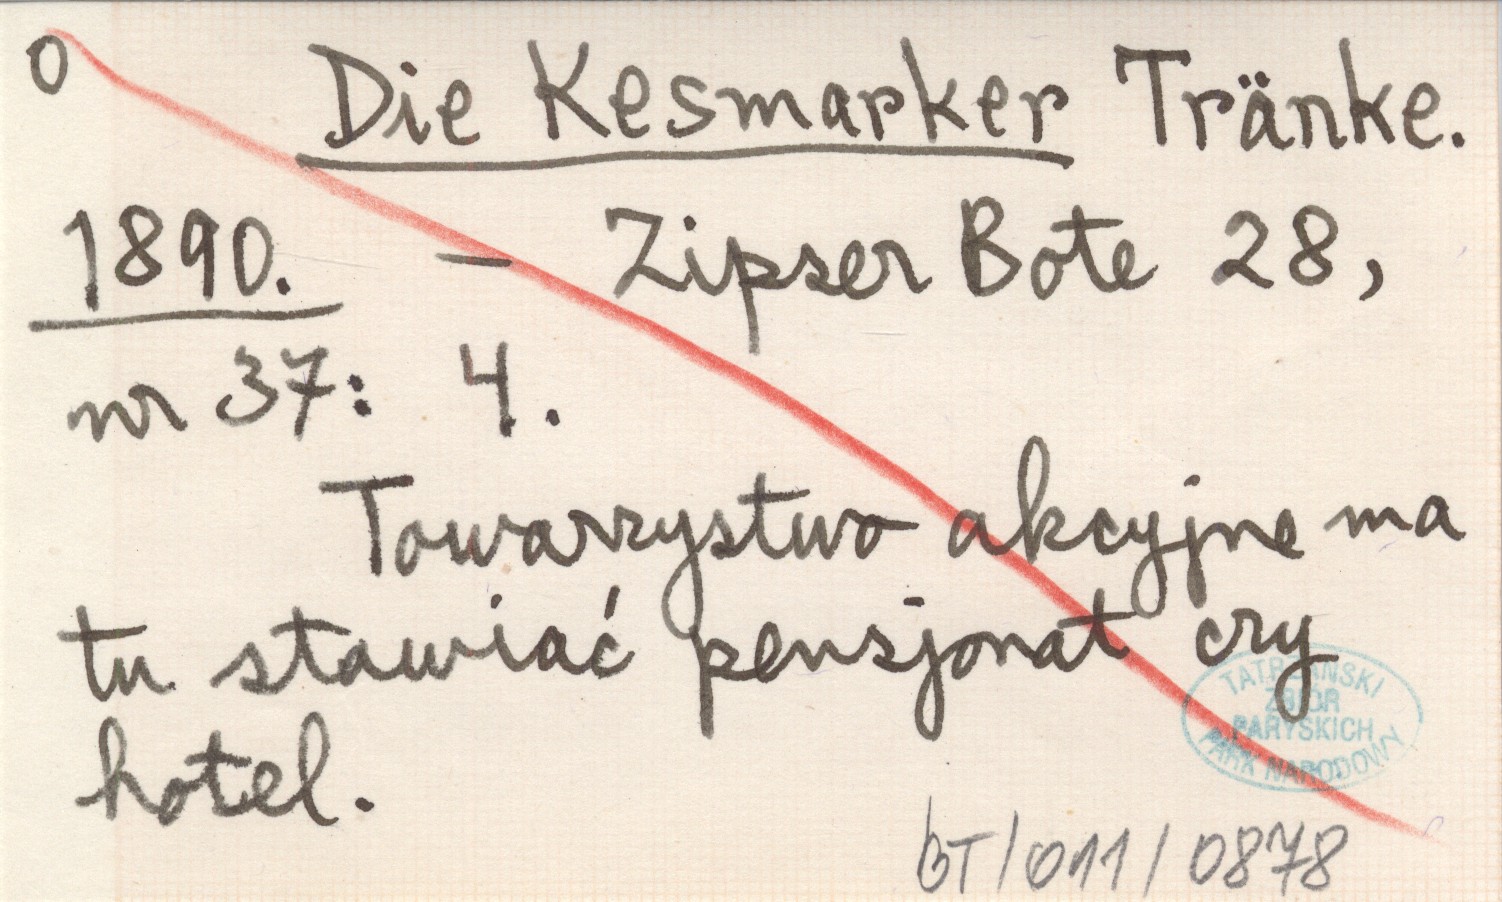 0 Die Kesmarker Tränke.
1890. – Zipser Bote 28,
nr 37: 4.
Towarzystwo akcyjne ma
tu stawiać pensjonat czy
hotel.
TATRZAŃSKI
ZBIÓR
PARYSKICH
PARK NARODOWY
BT/011/0878